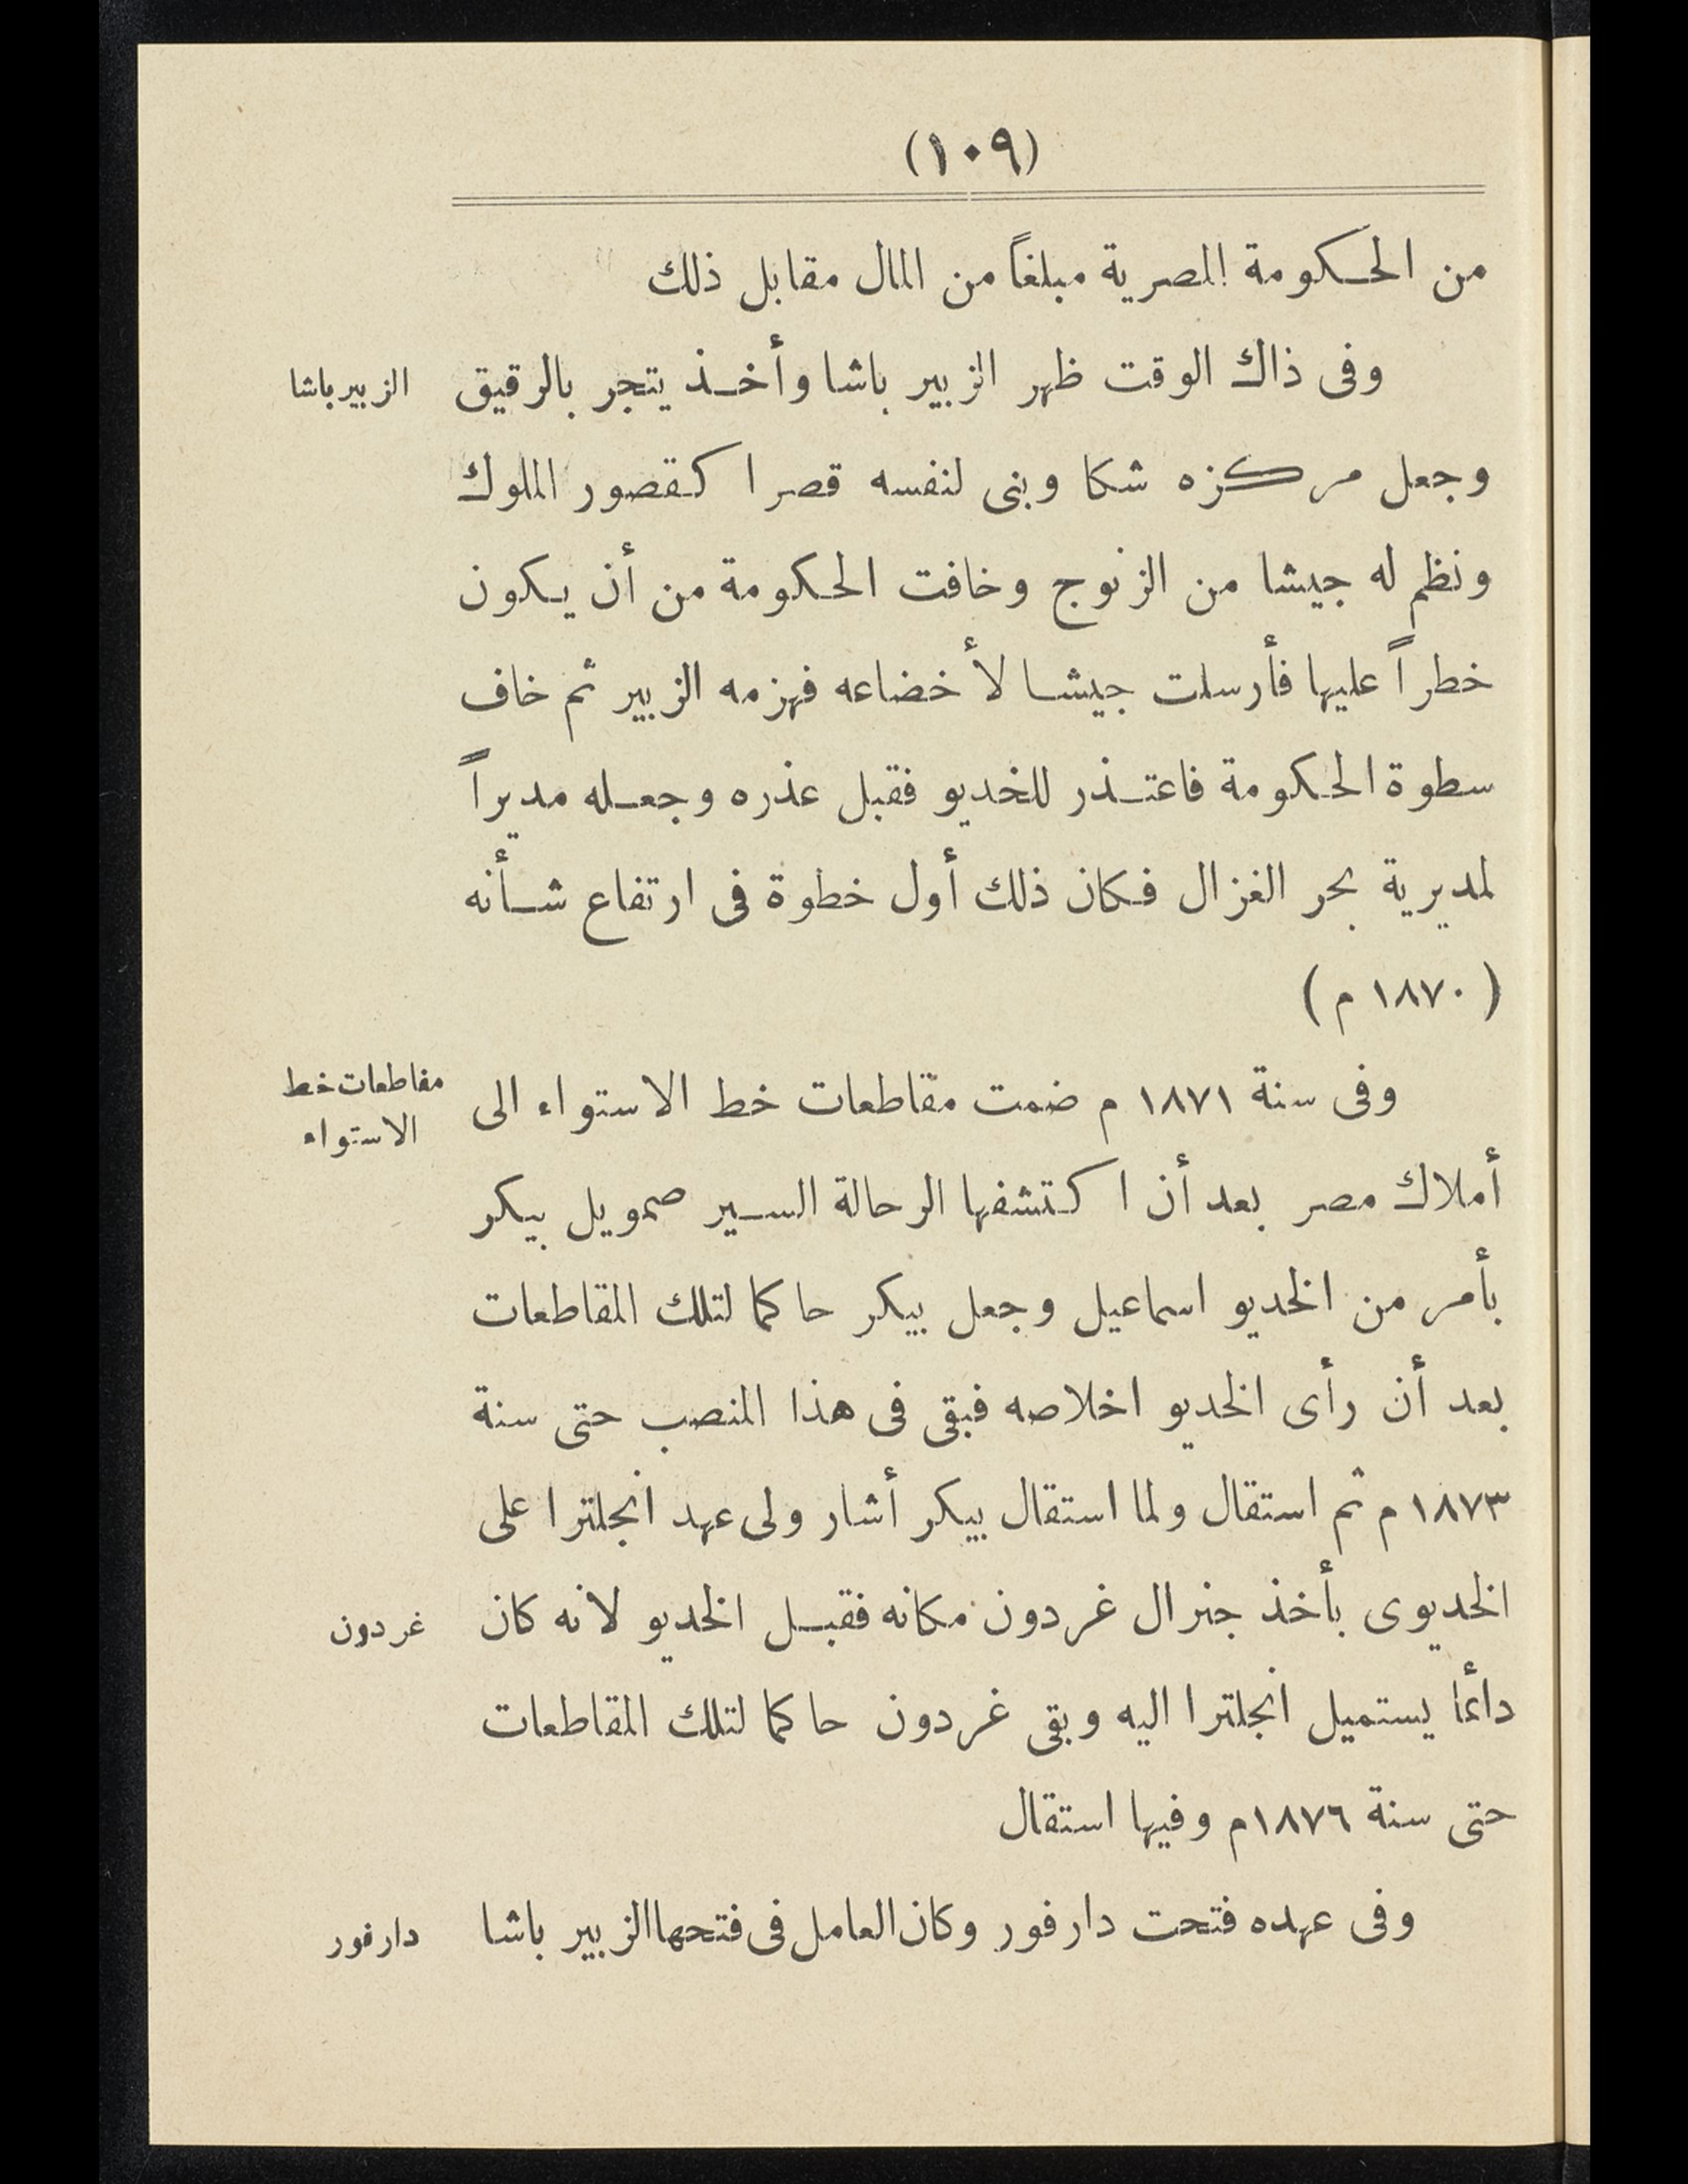 (١٠٩)
من الحكومة المصرية مبلغاً من المال مقابل ذلك
وفى ذاك الوقت ظهر الزبير باشا وأخذ يتجر بالرقيق
الزبير باشا
وجعل مركزه شكا وبنى لنفسه قصرا كقصور الملوك
ونظم له جيشا من الزنوج وخافت الحكومة من أن يكون
خطراً عليها فأرسلت جيشا لأخضاعه فهزمه الزبير ثم خاف
سطوة الحكومة فاعتذر للخديو فقبل عذره وجعله مديراً
لمديرية بحر الغزال فكان ذلك أول خطوة فى ارتفاع شأنه
( ١٨٧٠ م )
وفى سنة ١٨٧١ م ضمت مقاطعات خط الاستواء الى
مقاطعات خط
الاستواء
أملاك مصر بعد أن اكتشفها الرحالة السير صمويل بيكر
بأمر من الخديو اسماعيل وجعل بيكر حاكما لتلك المقاطعات
بعد أن رأى الخديو اخلاصه فبقى فى هذا المنصب حتى سنة
١٨٧٣ م ثم استقال ولما استقال بيكر أشار ولى عهد انجلترا على
الخديوى بأخذ جنرال غردون مكانه فقبل الخديو لانه كان
غردون
دائما يستميل انجلترا اليه وبقى غردون حاكما لتلك المقاطعات
حتى سنة ١٨٧٦م وفيها استقال
وفى عهده فتحت دارفور وكان العامل فى فتحها الزبير باشا
دارفور